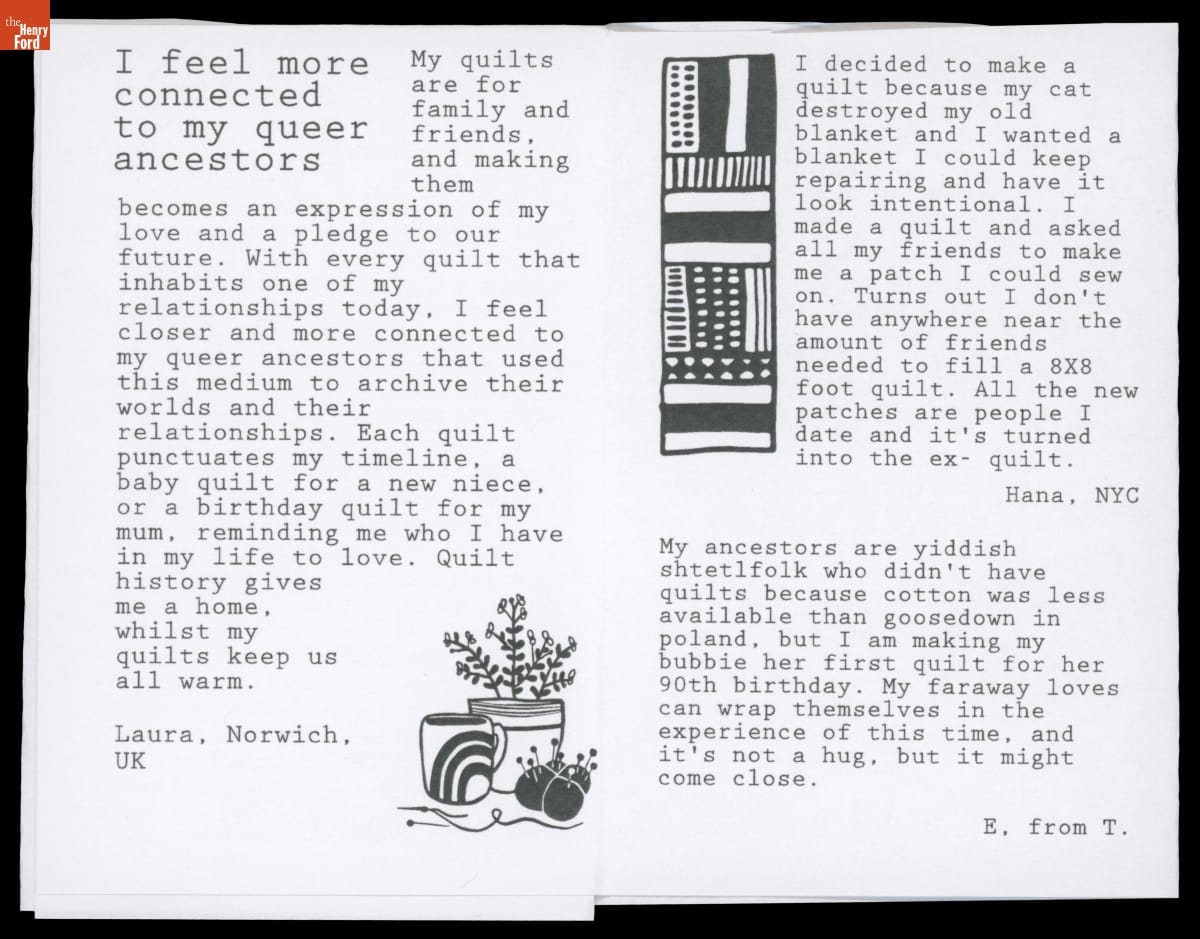 the
Henry
Ford
I feel more
connected
to my queer
ancestors
My quilts
are for
family and
friends,
and making
them
becomes an expression of my
love and a pledge to our
future. With every quilt that
inhabits one of my
relationships today, I feel
closer and more connected to
my queer ancestors that used
this medium to archive their
worlds and their
relationships. Each quilt
punctuates my timeline, a
baby quilt for a new niece,
or a birthday quilt for my
mum, reminding me who I have
in my life to love. Quilt
history gives
me a home,
whilst my
quilts keep us
all warm.
Laura, Norwich,
UK
I decided to make a
quilt because my cat
destroyed my old
blanket and I wanted a
blanket I could keep
repairing and have it
look intentional. I
made a quilt and asked
all my friends to make
me a patch I could sew
on. Turns out I don't
have anywhere near the
amount of friends
needed to fill a 8X8
foot quilt. All the new
patches are people I
date and it's turned
into the ex- quilt.
Hana, NYC
My ancestors are yiddish
shtetlfolk who didn't have
quilts because cotton was less
available than goosedown in
poland, but I am making my
bubbie her first quilt for her
90th birthday. My faraway loves
can wrap themselves in the
experience of this time, and
it's not a hug, but it might
come close.
E, from T.